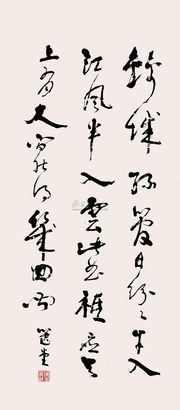 錦城絲管日紛々半入
江風半入雲此曲祗應天
上有人間能得幾回聞